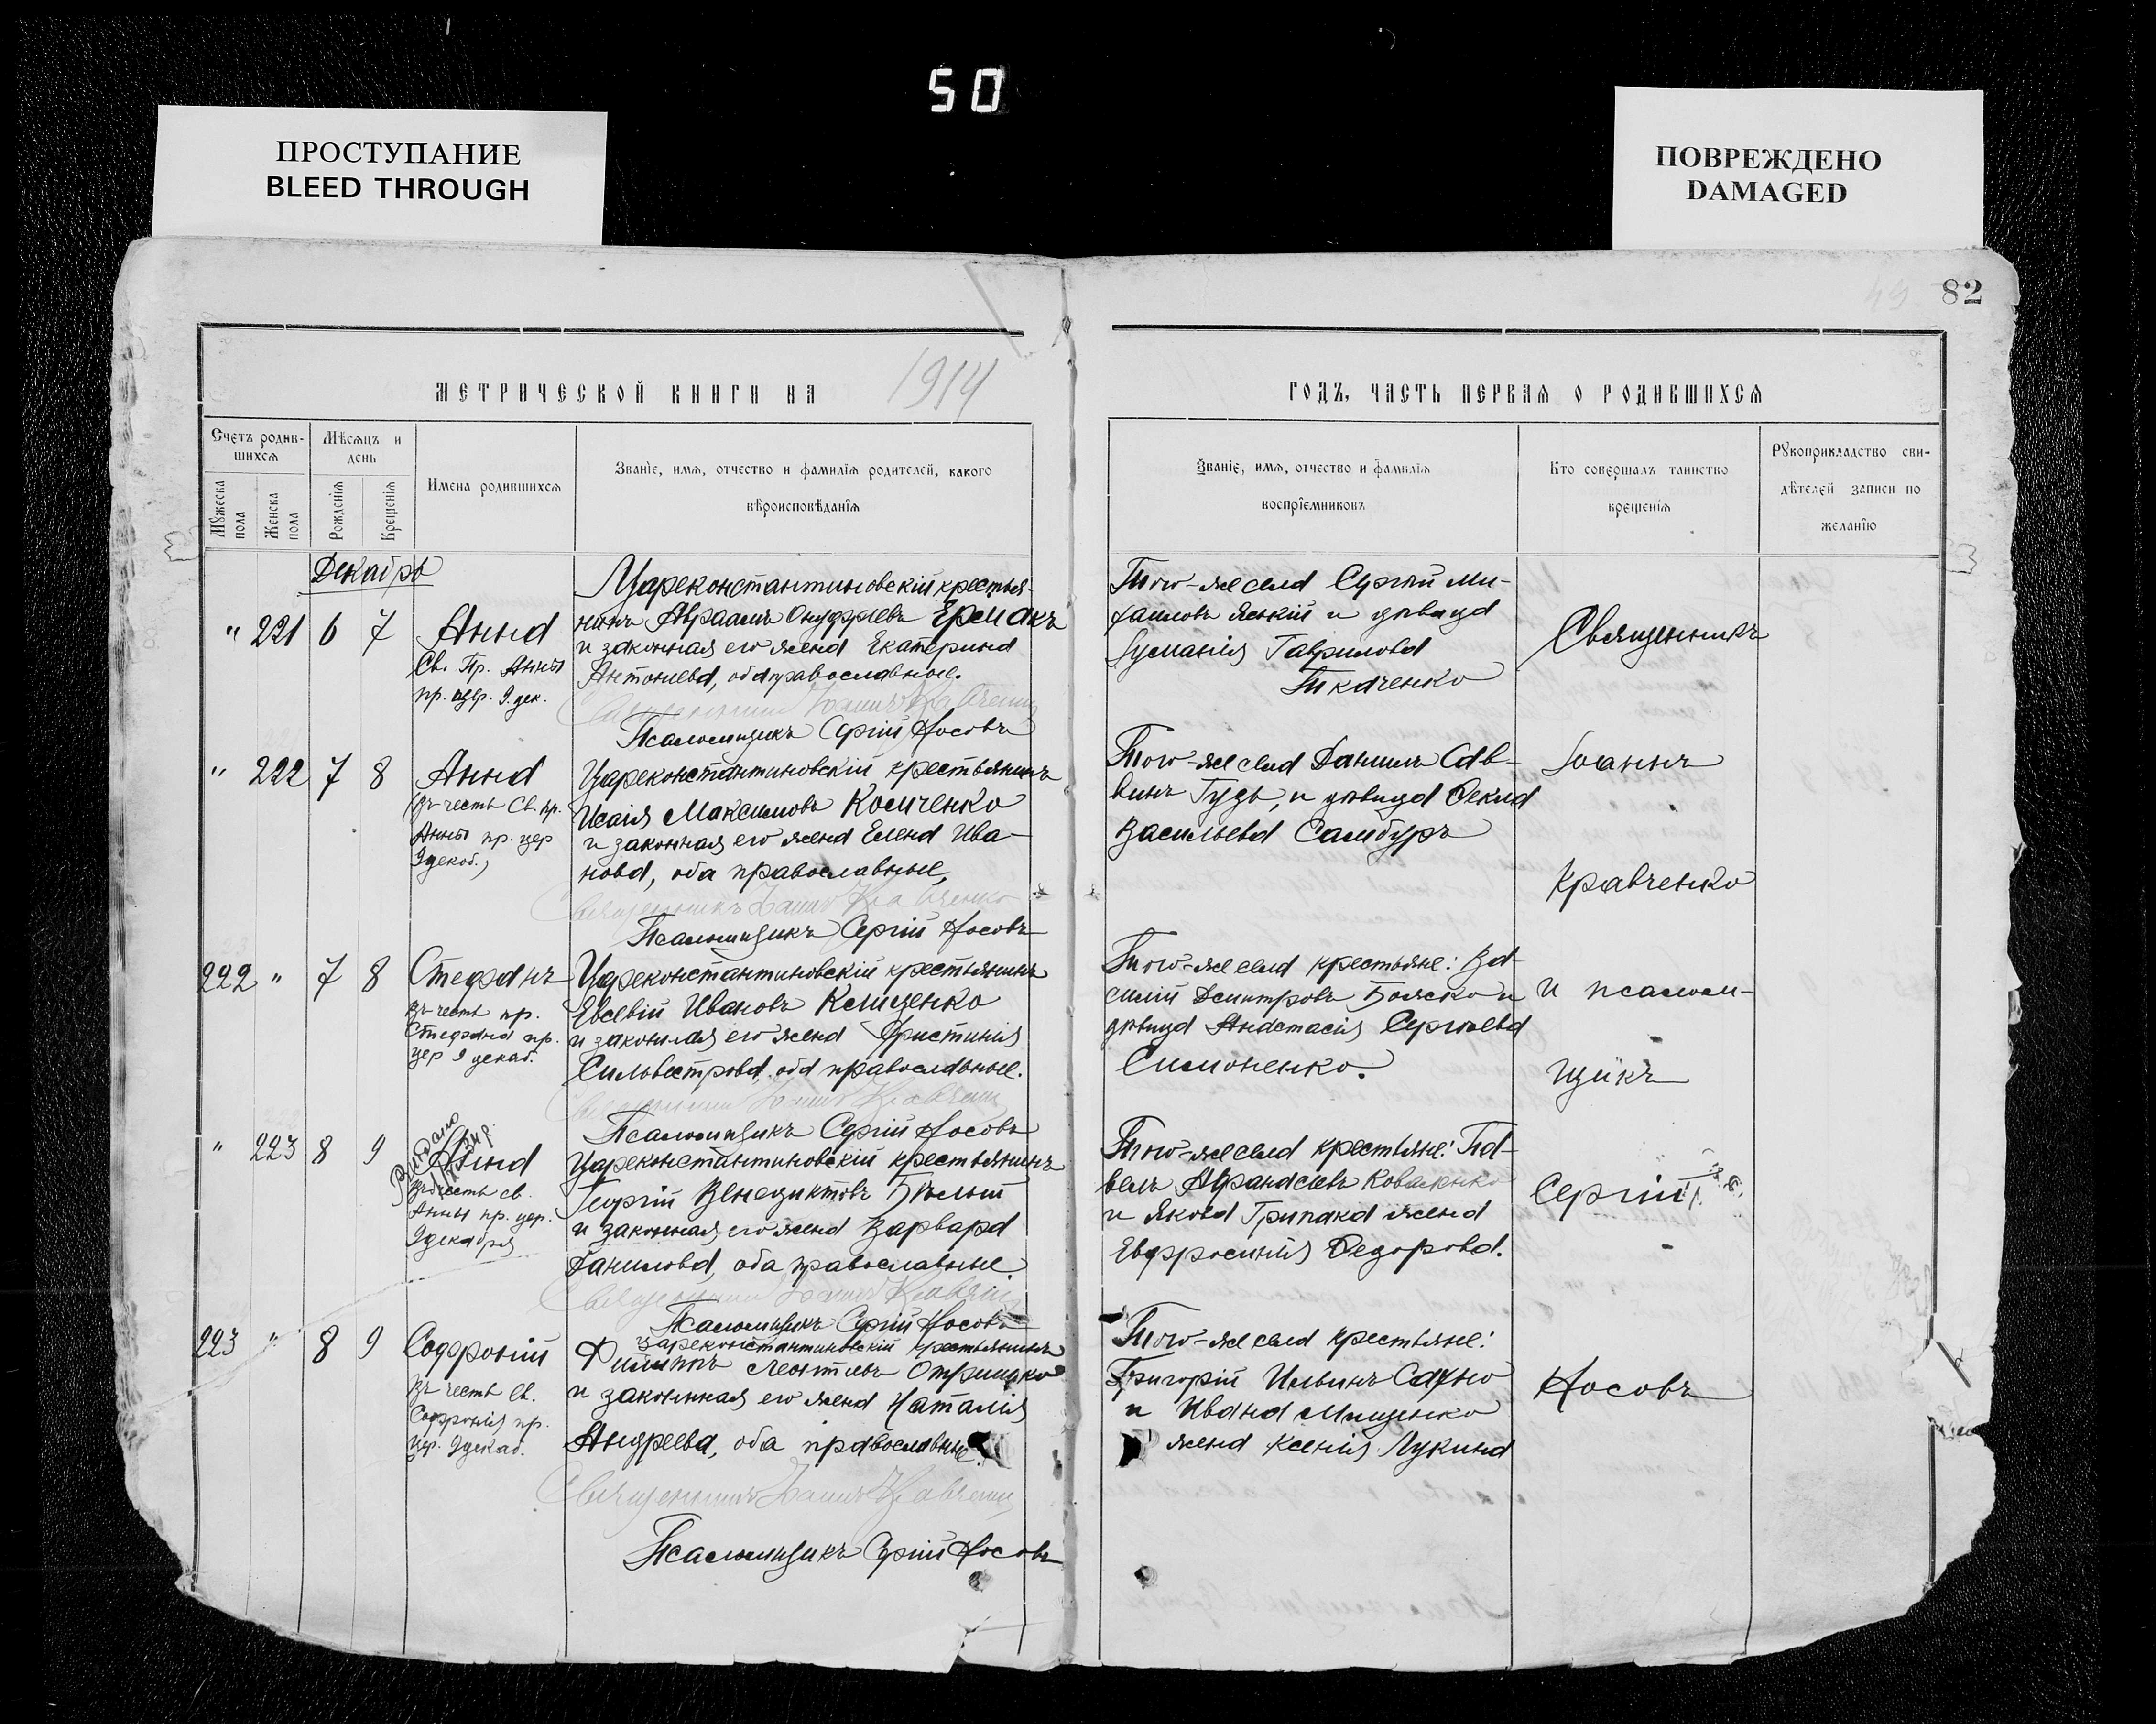 50
ПРОСТУПАНИЕ
BLEED THROUGH
ПОВРЕЖДЕНО
DAMAGED
82
МЕТРИЧЕСКОЙ КНИГИ НА 1914
ГОДЪ, ЧАСТЬ ПЕРВАЯ О РОДИВШИХСЯ
Счетъ родив-
шихся
Мужеска пола
Женска пола
Мѣсяцъ и
день
Рожденія
Крещенія
Имена родившихся
Званіе, имя, отчество и фамилія родителей, какого
вѣроисповѣданія
Званіе, имя, отчество и фамилія
воспріемниковъ
Кто совершалъ таинство
крещенія
Рукоприкладство сви-
дѣтелей записи по
желанію
Декабрь
" 221 6 7 Анна
Св. Пр. Анны
пр. цер. 9. дек.
Цареконстантиновскій крестья-
нинъ Авраамъ Онуфріевъ Ермакъ
и законная его жена Екатерина
Антониева, оба православные.
Священникъ Іоаннъ Кравченко
Псаломщикъ Сергій Носовъ
Того-же села Сергій Ми-
хаиловъ и дѣвица
Гаврилова
Ткаченко
" 222 7 8 Анна
Въ честь Св. пр.
Анны пр. цер
9 декаб.,
Цареконстантиновскій крестьянинъ
Исаія Максимовъ Комченко
и законная его жена Елена Ива-
нова, оба православные,
Священникъ Іоаннъ Кравченко
Псаломщикъ Сергій Носовъ
Того-же села Даниилъ Сав-
винъ Гудь, и дѣвица Ѳекла
Васильева Самбуръ
222 " 7 8 Стефанъ
Въ честь пр.
Стефана пр.
цер 9 декаб.
Цареконстантиновскій крестьянинъ
Евсевій Ивановъ Клищенко
и законная его жена Христинія
Сильвестрова, оба православные.
Священникъ Іоаннъ Кравченко
Псаломщикъ Сергій Носовъ
Того-же села крестьяне: Ва-
силій Димитровъ и
дѣвица Анастасія Сергѣева
Симоненко.
" 223 8 9 Анна
Въ честь св.
Анны пр. цер.
9 декабря
Цареконстантиновскій крестьянинъ
Георгій Венедиктовъ Бѣлый
и законная его жена Варвара
Данилова, оба православные.
Священникъ Іоаннъ Кравченко
Псаломщикъ Сергій Носовъ
Того-же села крестьяне: Па-
велъ Афанасіевъ Коваленко
и Якова Грипака жена
Евфросинія Ѳедорова.
223 " 8 9 Софроній
Въ честь св.
Софронія пр.
цер. 9 декаб.
Цареконстантиновскій крестьянинъ
Филиппъ Леонтіевъ Отришко
и законная его жена Наталія
Андреева, оба православные.
Священникъ Іоаннъ Кравченко
Псаломщикъ Сергій Носовъ
Того-же села крестьяне:
Григорій Ильинъ
и Ивана Мищенко
жена Ксенія Лукина
Священникъ
Іоаннъ
Кравченко
и псалом-
щикъ
Сергій
Носовъ